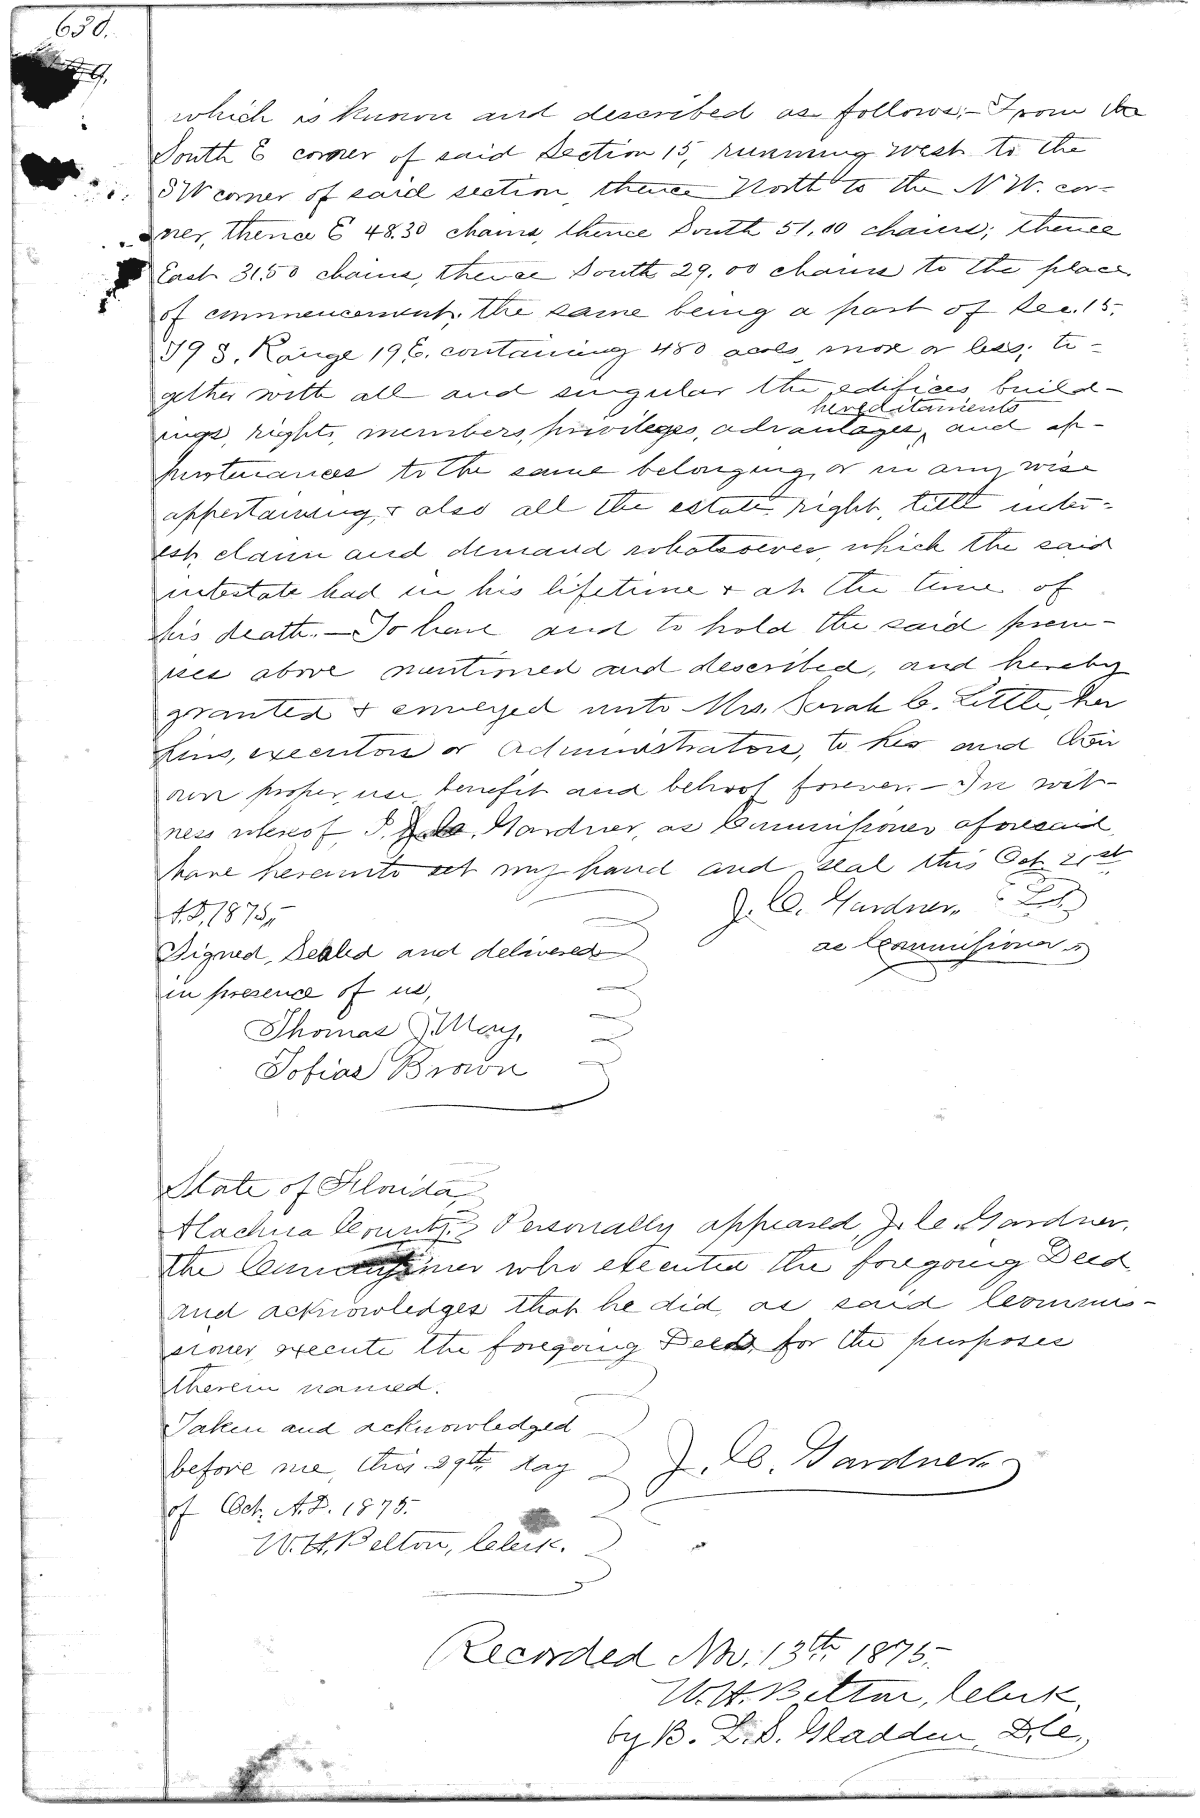 630.
which is known and described as follows;- From the
South E corner of said Section 15, running West to the
SW corner of said section, thence North to the N W. cor-
ner, thence E 48.30 chains, thence South 51.00 chains; thence
East 31.50 chains, thence South 29.00 chains to the place
of commencement, the same being a part of Sec. 15,
T9 S. Range 19 E. containing 480 acres more or less; to-
gether with all and singular the edifices, build-
hereditaments
ings, rights, members, privileges, advantages, and ap-
purtenances to the same belonging, or in any wise
appertaining, & also all the estate, right, title inter-
est, claim and demand whatsoever, which the said
intestate had in his lifetime & at the time of
his death.- To have and to hold the said prem-
ises above mentioned and described, and hereby
granted & conveyed unto Mrs. Sarah C. Little, her
heirs, executors or administrators, to her and their
own proper, use, benefit and behoof forever.- In wit-
ness whereof, I, J. C. Gardner, as Commissioner aforesaid,
have hereunto set my hand and seal this Oct 21st
A.D. 1875,-
J. C. Gardner. L.S.
as Commissioner.
Signed, Sealed and delivered
in presence of us,
Thomas J. May,
Tobias Brown
State of Florida,
Alachua County. Personally appeared, J. C. Gardner,
the Commissioner who executed the foregoing Deed
and acknowledges that he did, as said Commis-
sioner, execute the foregoing Deed, for the purposes
therein named.
Taken and acknowledged
before me, this 29th day
of Oct. A.D. 1875.
J. C. Gardner.
W. H. Belton, Clerk.
Recorded Nov. 13th 1875.
W. H. Belton, Clerk,
by B. L. S. Gladden, D.C.,